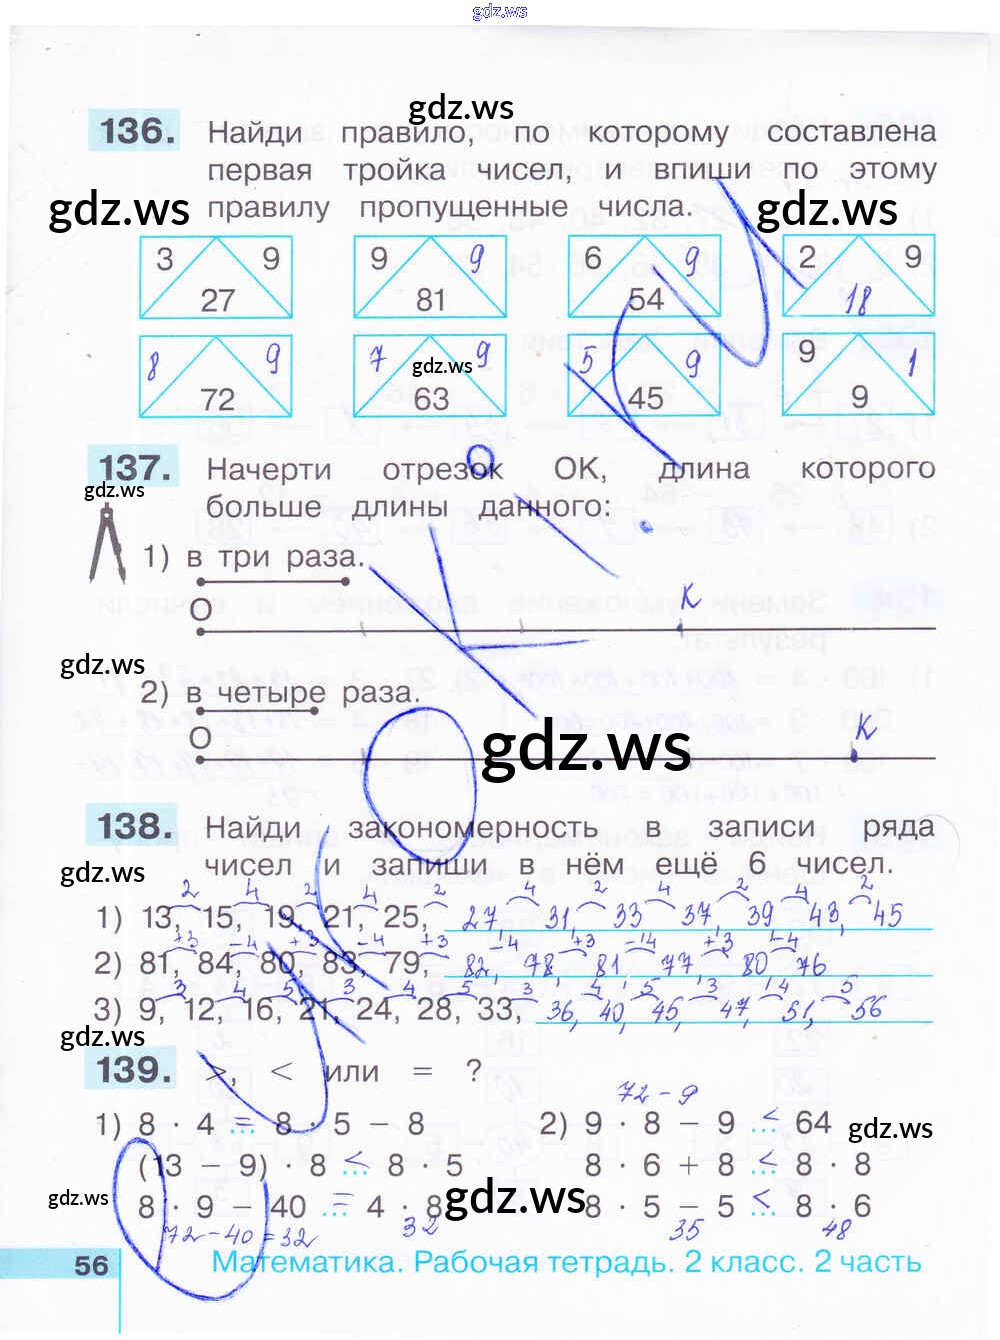 gdz.ws
gdz.ws
136. Найди правило, по которому составлена
первая тройка чисел, и впиши по этому
gdz.ws правилу пропущенные числа. gdz.ws
3 9 9 9 6 9 2 9
27 81 54 18
8 9 7 9 5 9 9 1
gdz.ws
72 63 45 9
137. Начерти отрезок ОК, длина которого
gdz.ws больше длины данного:
1) в три раза.
О К
gdz.ws
2) в четыре раза.
О gdz.ws К
138. Найди закономерность в записи ряда
gdz.ws чисел и запиши в нём ещё 6 чисел.
2 4 2 4 2 4 2 4 2 4 2
1) 13, 15, 19, 21, 25, 27, 31, 33 37, 39 43, 45
+3 -4 +3 -4 +3 -4 +3 -4 +3 -4
2) 81, 84, 80, 83, 79, 82, 78 81 77, 80 76
3 4 5 3 4 5 3 4 5 3 4 5
3) 9, 12, 16, 21, 24, 28, 33, 36, 40, 45, 47, 51, 56
gdz.ws
139. >, < или = ?
72 - 9
1) 8 · 4 = 8 · 5 − 8 2) 9 · 8 − 9 < 64 gdz.ws
(13 − 9) · 8 < 8 · 5 8 · 6 + 8 < 8 · 8
gdz.ws 8 · 9 − 40 = 4 · 8 gdz.ws 8 · 5 − 5 < 8 · 6
72-40=32 32 35 48
56 Математика. Рабочая тетрадь. 2 класс. 2 часть